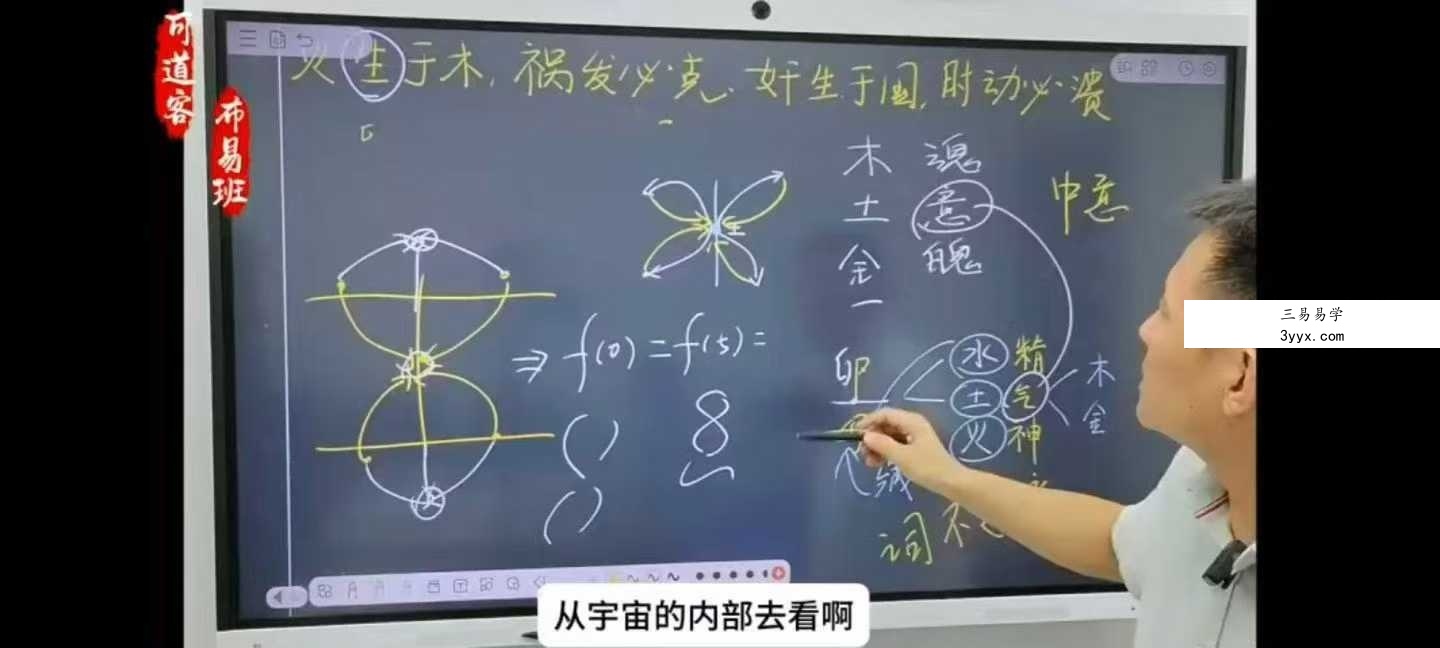 可道客
布易班
火生于木,祸发必克.奸生于国,时动必溃
木 魂
土 意
金 魄
中意
⇒ f(0)=f(5)=
卯
水 精
土 气
火 神
木
金
8
缄
词不
三易易学
3yyx.com
从宇宙的内部去看啊